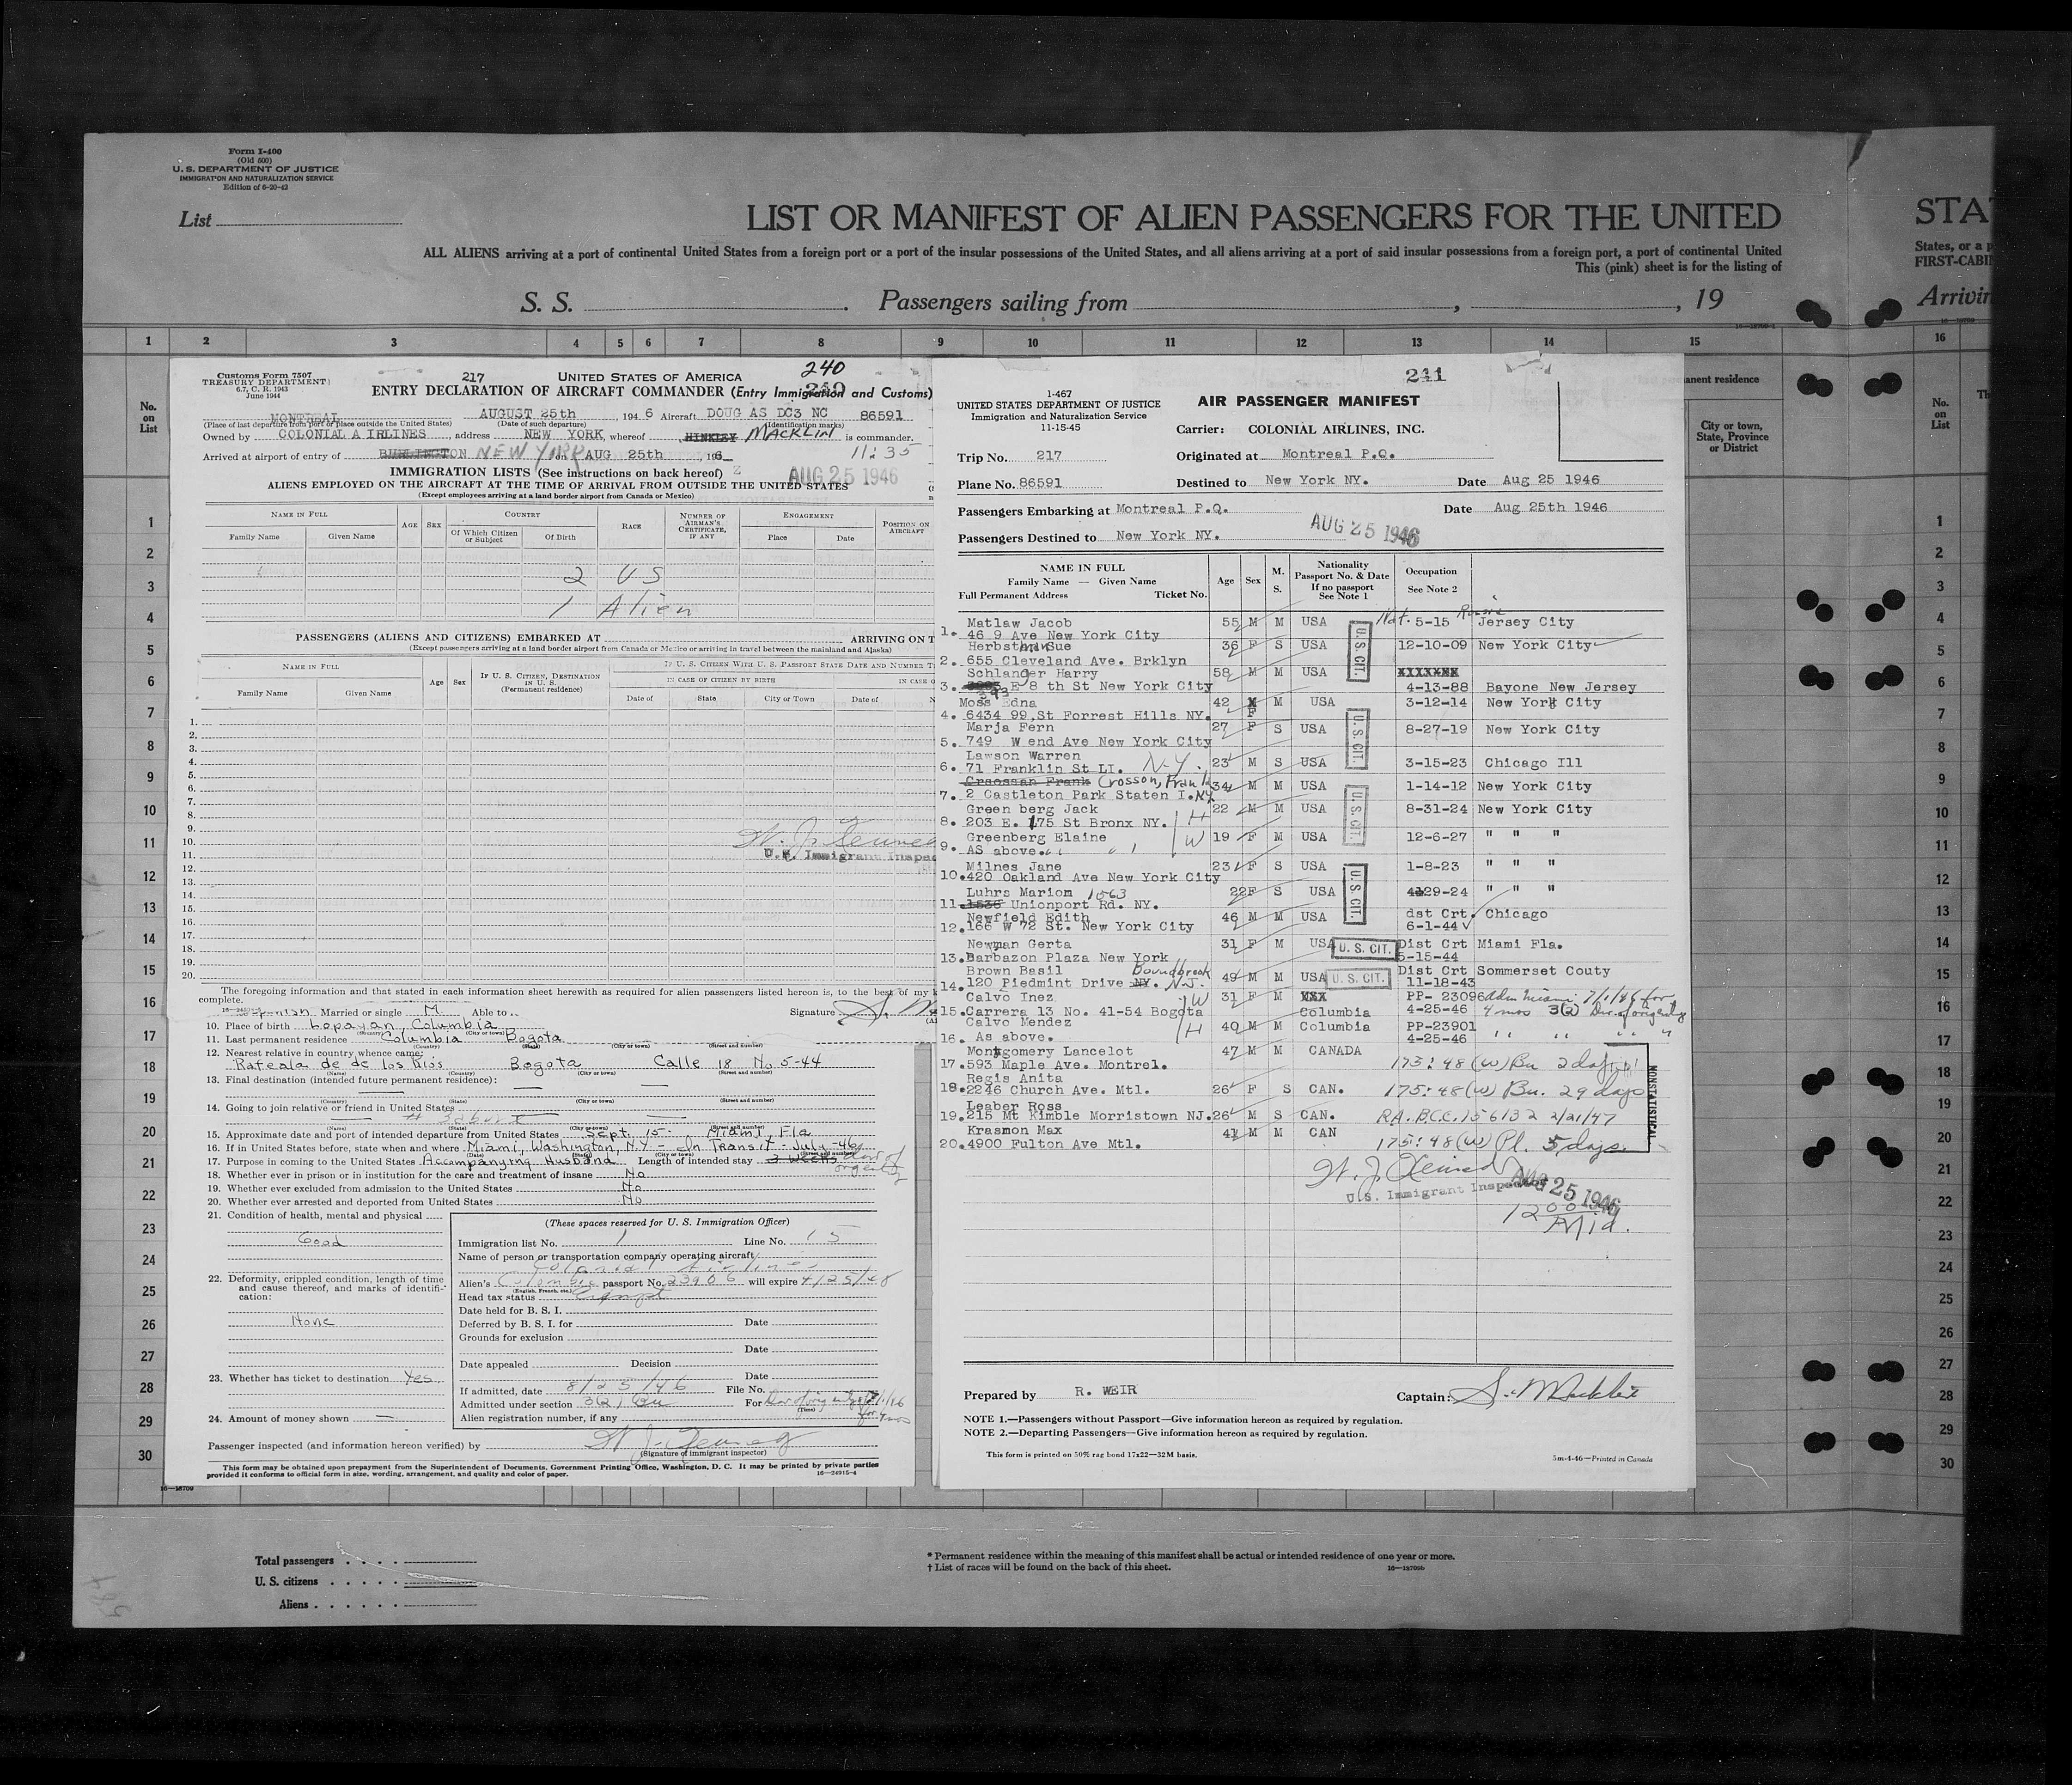 Form I-400
(Old 500)
U. S. DEPARTMENT OF JUSTICE
IMMIGRATION AND NATURALIZATION SERVICE
Edition of 6-20-42
List
LIST OR MANIFEST OF ALIEN PASSENGERS FOR THE UNITED
ALL ALIENS arriving at a port of continental United States from a foreign port or a port of the insular possessions of the United States, and all aliens arriving at a port of said insular possessions from a foreign port, a port of continental United
This (pink) sheet is for the listing of
S. S. . Passengers sailing from , , 19
STA
States, or a p
FIRST-CABI
Arrivin
1 2 3 4 5 6 7 8 9 10 11 12 13 14 15 16
No. on List
Customs Form 7507
TREASURY DEPARTMENT
6.7, C. R. 1943
June 1944
217 UNITED STATES OF AMERICA 240
ENTRY DECLARATION OF AIRCRAFT COMMANDER (Entry Immigration and Customs)
MONTREAL AUGUST 25th, 194 6 Aircraft DOUG AS DC3 NC 86591
(Place of last departure from port or place outside the United States) (Date of such departure) (Identification marks)
Owned by COLONIAL A IRLINES, address NEW YORK, whereof HINKLEY MACKLIN is commander.
Arrived at airport of entry of BURLINGTON NEW YORK on AUG 25th, 196 11:35
IMMIGRATION LISTS (See instructions on back hereof)
AUG 25 1946
ALIENS EMPLOYED ON THE AIRCRAFT AT THE TIME OF ARRIVAL FROM OUTSIDE THE UNITED STATES
(Except employees arriving at a land border airport from Canada or Mexico)
NAME IN FULL AGE SEX COUNTRY RACE NUMBER OF AIRMAN'S CERTIFICATE, IF ANY ENGAGEMENT POSITION ON AIRCRAFT
Family Name Given Name Of Which Citizen or Subject Of Birth Place Date
2 US
1 Alien
PASSENGERS (ALIENS AND CITIZENS) EMBARKED AT ARRIVING ON T
(Except passengers arriving at a land border airport from Canada or Mexico or arriving in travel between the mainland and Alaska)
NAME IN FULL Age Sex IF U. S. CITIZEN, DESTINATION IN U. S. (Permanent residence) IF U. S. CITIZEN WITH U. S. PASSPORT STATE DATE AND NUMBER T
IN CASE OF CITIZEN BY BIRTH IN CASE O
Family Name Given Name Date of State City or Town Date of N
1.
2.
3.
4.
5.
6.
7.
8.
9.
10.
11.
12.
13.
14.
15.
16.
17.
18.
19.
20.
U. S. Immigrant Inspec
The foregoing information and that stated in each information sheet herewith as required for alien passengers listed hereon is, to the best of my k
complete.
Signature
Married or single M Able to
10. Place of birth Popayan, Columbia
11. Last permanent residence Columbia Bogota
12. Nearest relative in country whence came:
Rafeala de de los Rios Bogota Calle 18 No 5-44
13. Final destination (intended future permanent residence):
14. Going to join relative or friend in United States
15. Approximate date and port of intended departure from United States Sept. 15- Miami, Fla
16. If in United States before, state when and where Miami, Washington, N.Y - In Transit - July -46
17. Purpose in coming to the United States Accompanying Husband Length of intended stay 3 weeks
18. Whether ever in prison or in institution for the care and treatment of insane No
19. Whether ever excluded from admission to the United States No
20. Whether ever arrested and deported from United States No
21. Condition of health, mental and physical
Good
22. Deformity, crippled condition, length of time and cause thereof, and marks of identification:
None
23. Whether has ticket to destination Yes
24. Amount of money shown —
(These spaces reserved for U. S. Immigration Officer)
Immigration list No. 1 Line No. 15
Name of person or transportation company operating aircraft
Colonial Airlines
Alien's Colombia passport No. 23906 will expire 4/25/48
(English, French, etc.)
Head tax status Exempt
Date held for B. S. I.
Deferred by B. S. I. for Date
Grounds for exclusion
Date
Date appealed Decision
Date
If admitted, date 8/25/46 File No.
Admitted under section 3(2) For
Alien registration number, if any
Passenger inspected (and information hereon verified) by
(Signature of immigrant inspector)
This form may be obtained upon prepayment from the Superintendent of Documents, Government Printing Office, Washington, D. C. It may be printed by private parties
provided it conforms to official form in size, wording, arrangement, and quality and color of paper.
16—24915-4
241
I-467
UNITED STATES DEPARTMENT OF JUSTICE
Immigration and Naturalization Service
11-15-45
AIR PASSENGER MANIFEST
Carrier: COLONIAL AIRLINES, INC.
Trip No. 217 Originated at Montreal P.Q.
Plane No. 86591 Destined to New York NY. Date Aug 25 1946
Passengers Embarking at Montreal P.Q. Date Aug 25th 1946
Passengers Destined to New York NY. AUG 25 1946
NAME IN FULL
Family Name — Given Name
Full Permanent Address Ticket No.
Age Sex M. S. Nationality Passport No. & Date If no passport See Note 1 Occupation See Note 2
Matlaw Jacob 55 M M USA Nat. 5-15 Jersey City
1. 46 9 Ave New York City
Herbstman Sue 36 F S USA 12-10-09 New York City
2. 655 Cleveland Ave. Brklyn
Schlanger Harry 58 M M USA XXXXXXX
3. 393 E 8 th St New York City 4-13-88 Bayone New Jersey
Moss Edna 42 F M USA 3-12-14 New York City
4. 6434 99,St Forrest Hills NY.
Marja Fern 27 F S USA 8-27-19 New York City
5. 749 W end Ave New York City
Lawson Warren 23 M S USA 3-15-23 Chicago Ill
6. 71 Franklin St LI. N.Y.
Crosson, Frank 34 M M USA 1-14-12 New York City
7. 2 Castleton Park Staten I. NY
Green berg Jack 22 M M USA 8-31-24 New York City
8. 203 E. 175 St Bronx NY. H
Greenberg Elaine 19 F M USA 12-6-27 " " "
9. AS above. W
Milnes Jane 23 F S USA 1-8-23 " " "
10. 420 Oakland Ave New York City
Luhrs Mariom 22F S USA 4-29-24 " " "
11. 1563 Unionport Rd. NY.
Newfield Edith 46 M M USA dst Crt. Chicago
12. 166 W 72 St. New York City 6-1-44
Newman Gerta 31 F M USA Dist Crt Miami Fla.
13. Barbazon Plaza New York 5-15-44
Brown Basil Boundbrook 49 M M USA Dist Crt Sommerset Couty
14. 120 Piedmint Drive NY. N.J. 11-18-43
Calvo Inez W 31 F M XXX PP- 23096 Adm Miami 7/1/46 for
15. Carrera 13 No. 41-54 Bogota Columbia 4-25-46 4 mos 3(2)
Calvo Mendez 40 M M Columbia PP-23901
16. As above. H 4-25-46
Montgomery Lancelot 47 M M CANADA
17. 593 Maple Ave. Montrel. 175:48 (w) Bu 2 days
Regis Anita 26 F S CAN. 175:48 (w) Bu. 29 days
18. 2246 Church Ave. Mtl.
Leaber Ross 26 M S CAN.
19. 215 Mt Kimble Morristown NJ.
Krasmon Max 41 M M CAN 175:48 (w) Pl. 5 days
20. 4900 Fulton Ave Mtl.
U.S. CIT.
U.S. CIT.
U.S. CIT.
U.S. CIT.
U. S. CIT.
U. S. CIT.
NONSTATISTICAL
U.S. Immigrant Inspector
AUG 25 1946
1200 Mid.
Prepared by R. WEIR Captain: S. Macklin
NOTE 1.—Passengers without Passport—Give information hereon as required by regulation.
NOTE 2.—Departing Passengers—Give information hereon as required by regulation.
This form is printed on 50% rag bond 17x22—32M basis.
5m-4-46—Printed in Canada
anent residence
City or town, State, Province or District
Total passengers
U. S. citizens
Aliens
* Permanent residence within the meaning of this manifest shall be actual or intended residence of one year or more.
† List of races will be found on the back of this sheet.